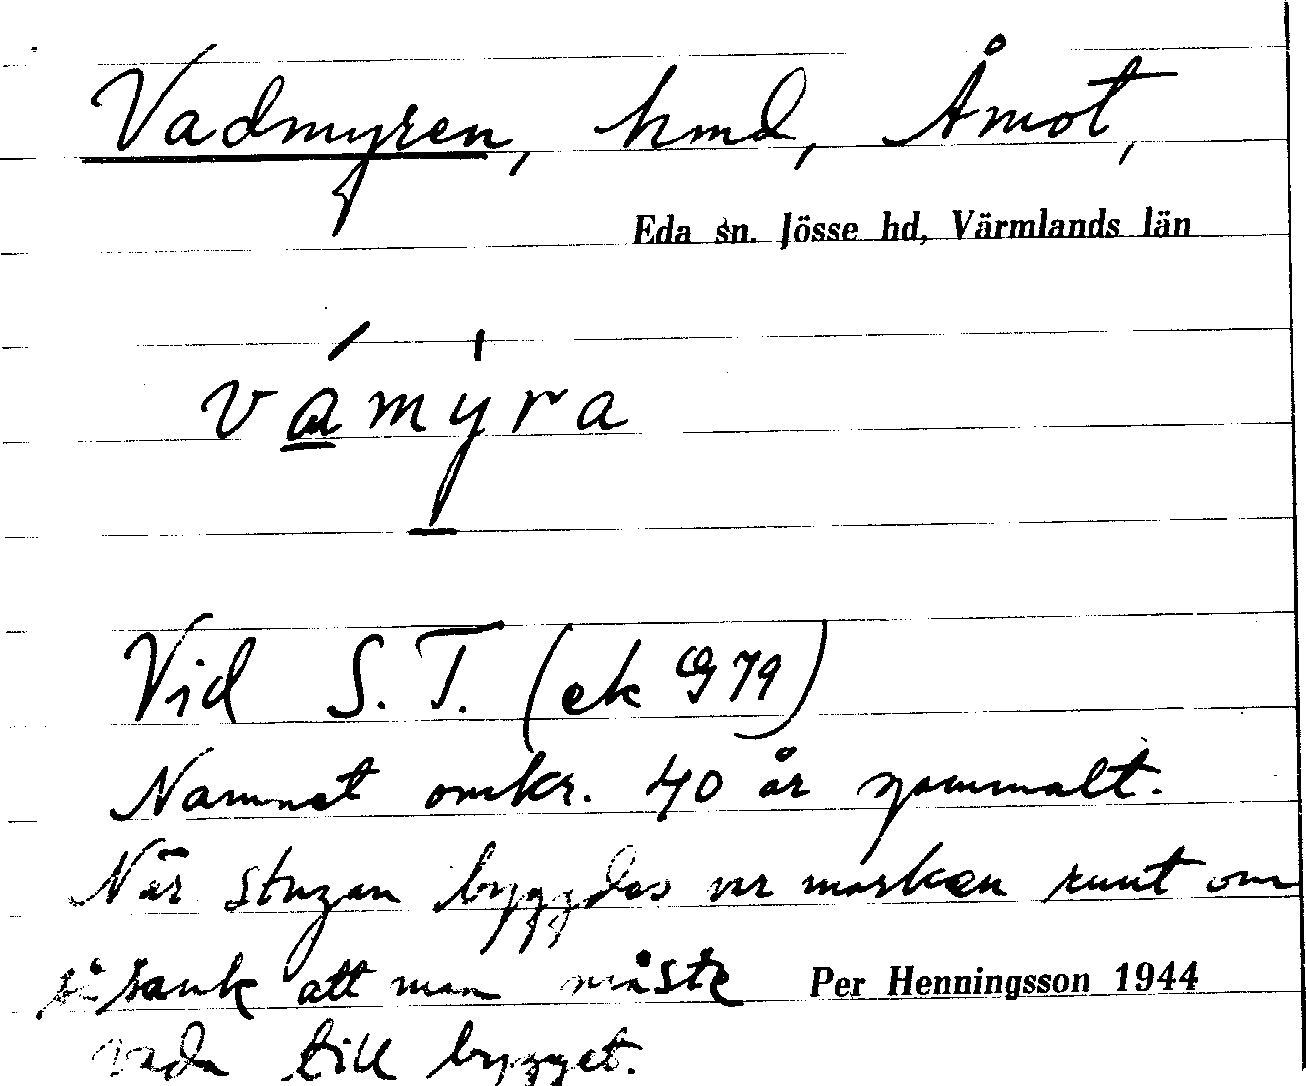 Vadmyren, hmd, Åmot,
Eda sn. Jösse hd, Värmlands län
vámýra
Vid S. T. (ek G 79)
Namnet omkr. 40 år gammalt.
När stugan byggdes var marken runt om
så sank att man måste
Per Henningsson 1944
vada till bygget.